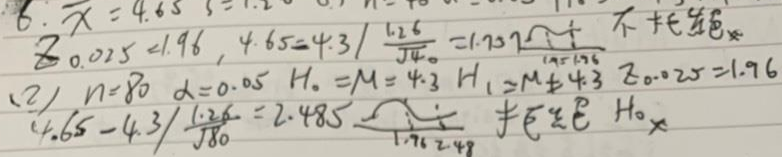 6. x̄ = 4.65
Z0.025 = 1.96 , 4.65 = 4.3 / 1.26/√40 = 1.757 1.96 不拒絕
(2) n=80 α=0.05 H0 = M = 4.3 H1 = M ≠ 4.3 Z0.025 = 1.96
4.65 - 4.3 / 1.26/√80 = 2.485 1.96 2.48 拒絕 H0